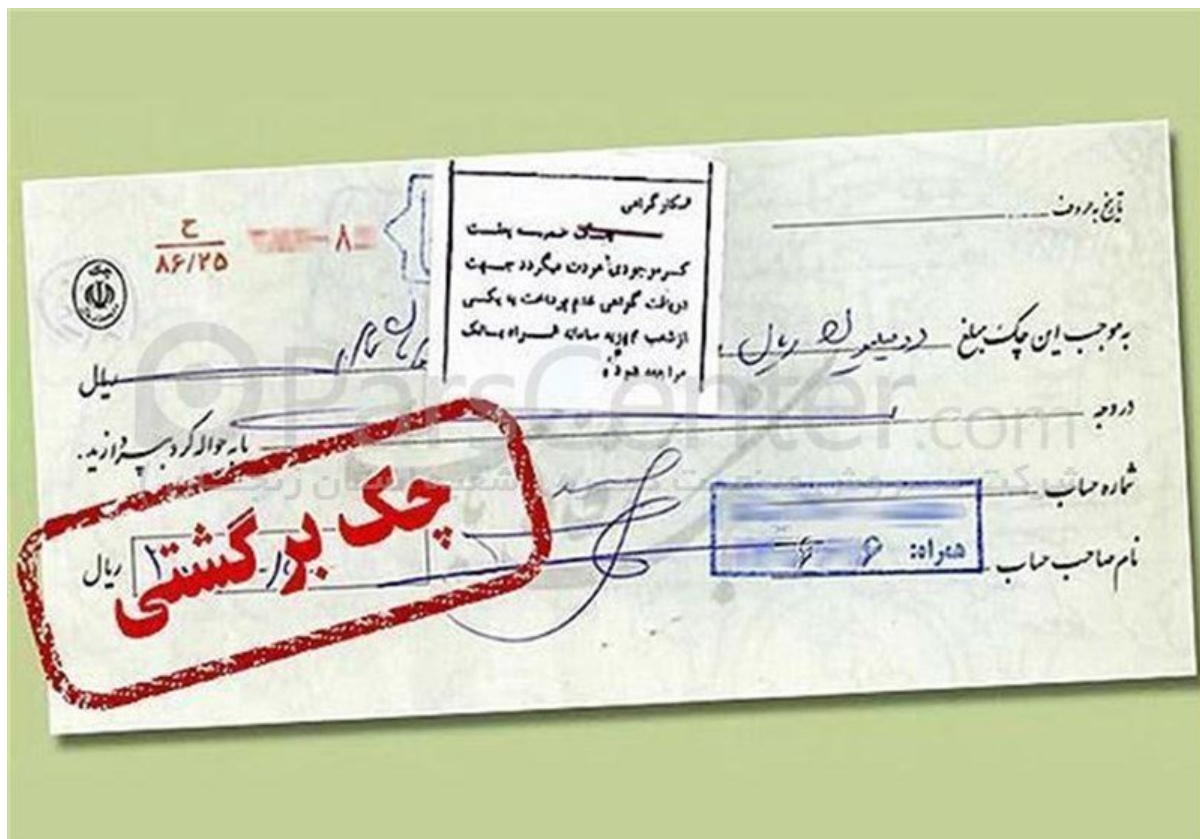 تاریخ به حروف
ح
۸۶/۲۵
۸
همکار گرامی
چک ضمیمه بعلت
کسر موجودی عودت میگردد جهت
دریافت گواهی عدم پرداخت به یکی
از شعب مجهز به سامانه همراه بانک
مراجعه شود
به موجب این چک مبلغ دو میلیون ریال تمام ریال
در وجه
یا به حواله کرد بپردازید.
شماره حساب
نام صاحب حساب
همراه: ۶ ۶
ریال
چک برگشتی
ParsCenter.com